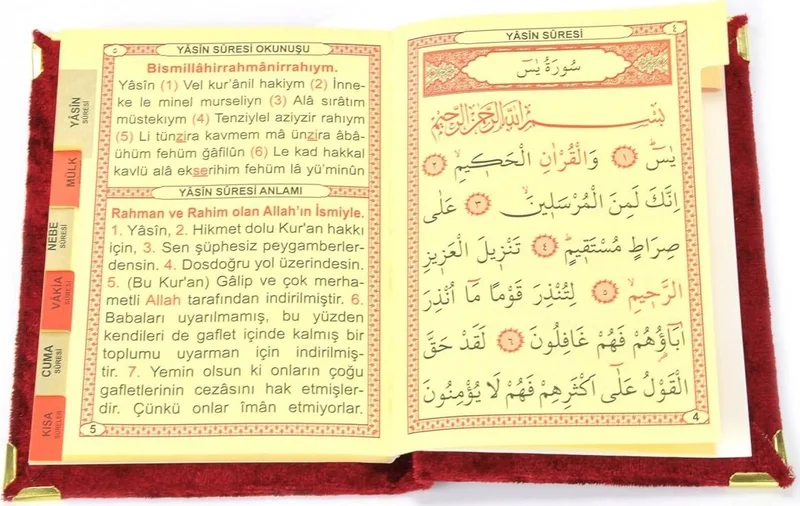 ٥ YÂSÎN SÛRESİ OKUNUŞU
Bismillâhirrahmânirrahıym.
Yâsîn (1) Vel kur'ânil hakiym (2) İnne-
ke le minel murseliyn (3) Alâ sırâtım
müstekıym (4) Tenziylel aziyzir rahıym
(5) Li tünzira kavmem mâ ünzira âbâ-
ühüm fehüm ğafilûn (6) Le kad hakkal
kavlü alâ ekserihim fehüm lâ yü'minûn
YÂSÎN SÛRESİ ANLAMI
Rahman ve Rahim olan Allah'ın İsmiyle.
1. Yâsîn, 2. Hikmet dolu Kur'an hakkı
için, 3. Sen şüphesiz peygamberler-
densin. 4. Dosdoğru yol üzerindesin.
5. (Bu Kur'an) Gâlip ve çok merha-
metli Allah tarafından indirilmiştir. 6.
Babaları uyarılmamış, bu yüzden
kendileri de gaflet içinde kalmış bir
toplumu uyarman için indirilmiş-
tir. 7. Yemin olsun ki onların çoğu
gafletlerinin cezâsını hak etmişler-
dir. Çünkü onlar îmân etmiyorlar.
5
YÂSÎN
SÛRESİ
MÜLK
NEBE
SÛRESİ
VÂKIA
SÛRESİ
CUMA
SÛRESİ
KISA
SÛRELER
YÂSÎN SÛRESİ ٤
سُورَةُ يٰسٓ
بِسْمِ اللّٰهِ الرَّحْمٰنِ الرَّحِيمِ
يٰسٓ ﴿١﴾ وَالْقُرْاٰنِ الْحَكِيمِۙ ﴿٢﴾
اِنَّكَ لَمِنَ الْمُرْسَلِينَۙ ﴿٣﴾ عَلٰى
صِرَاطٍ مُسْتَقِيمٍۜ ﴿٤﴾ تَنْزِيلَ الْعَزِيزِ
الرَّحِيمِۙ ﴿٥﴾ لِتُنْذِرَ قَوْمًا مَٓا اُنْذِرَ
اٰبَٓاؤُ۬هُمْ فَهُمْ غَافِلُونَ ﴿٦﴾ لَقَدْ حَقَّ
الْقَوْلُ عَلٰٓى اَكْثَرِهِمْ فَهُمْ لَا يُؤْمِنُونَ
4